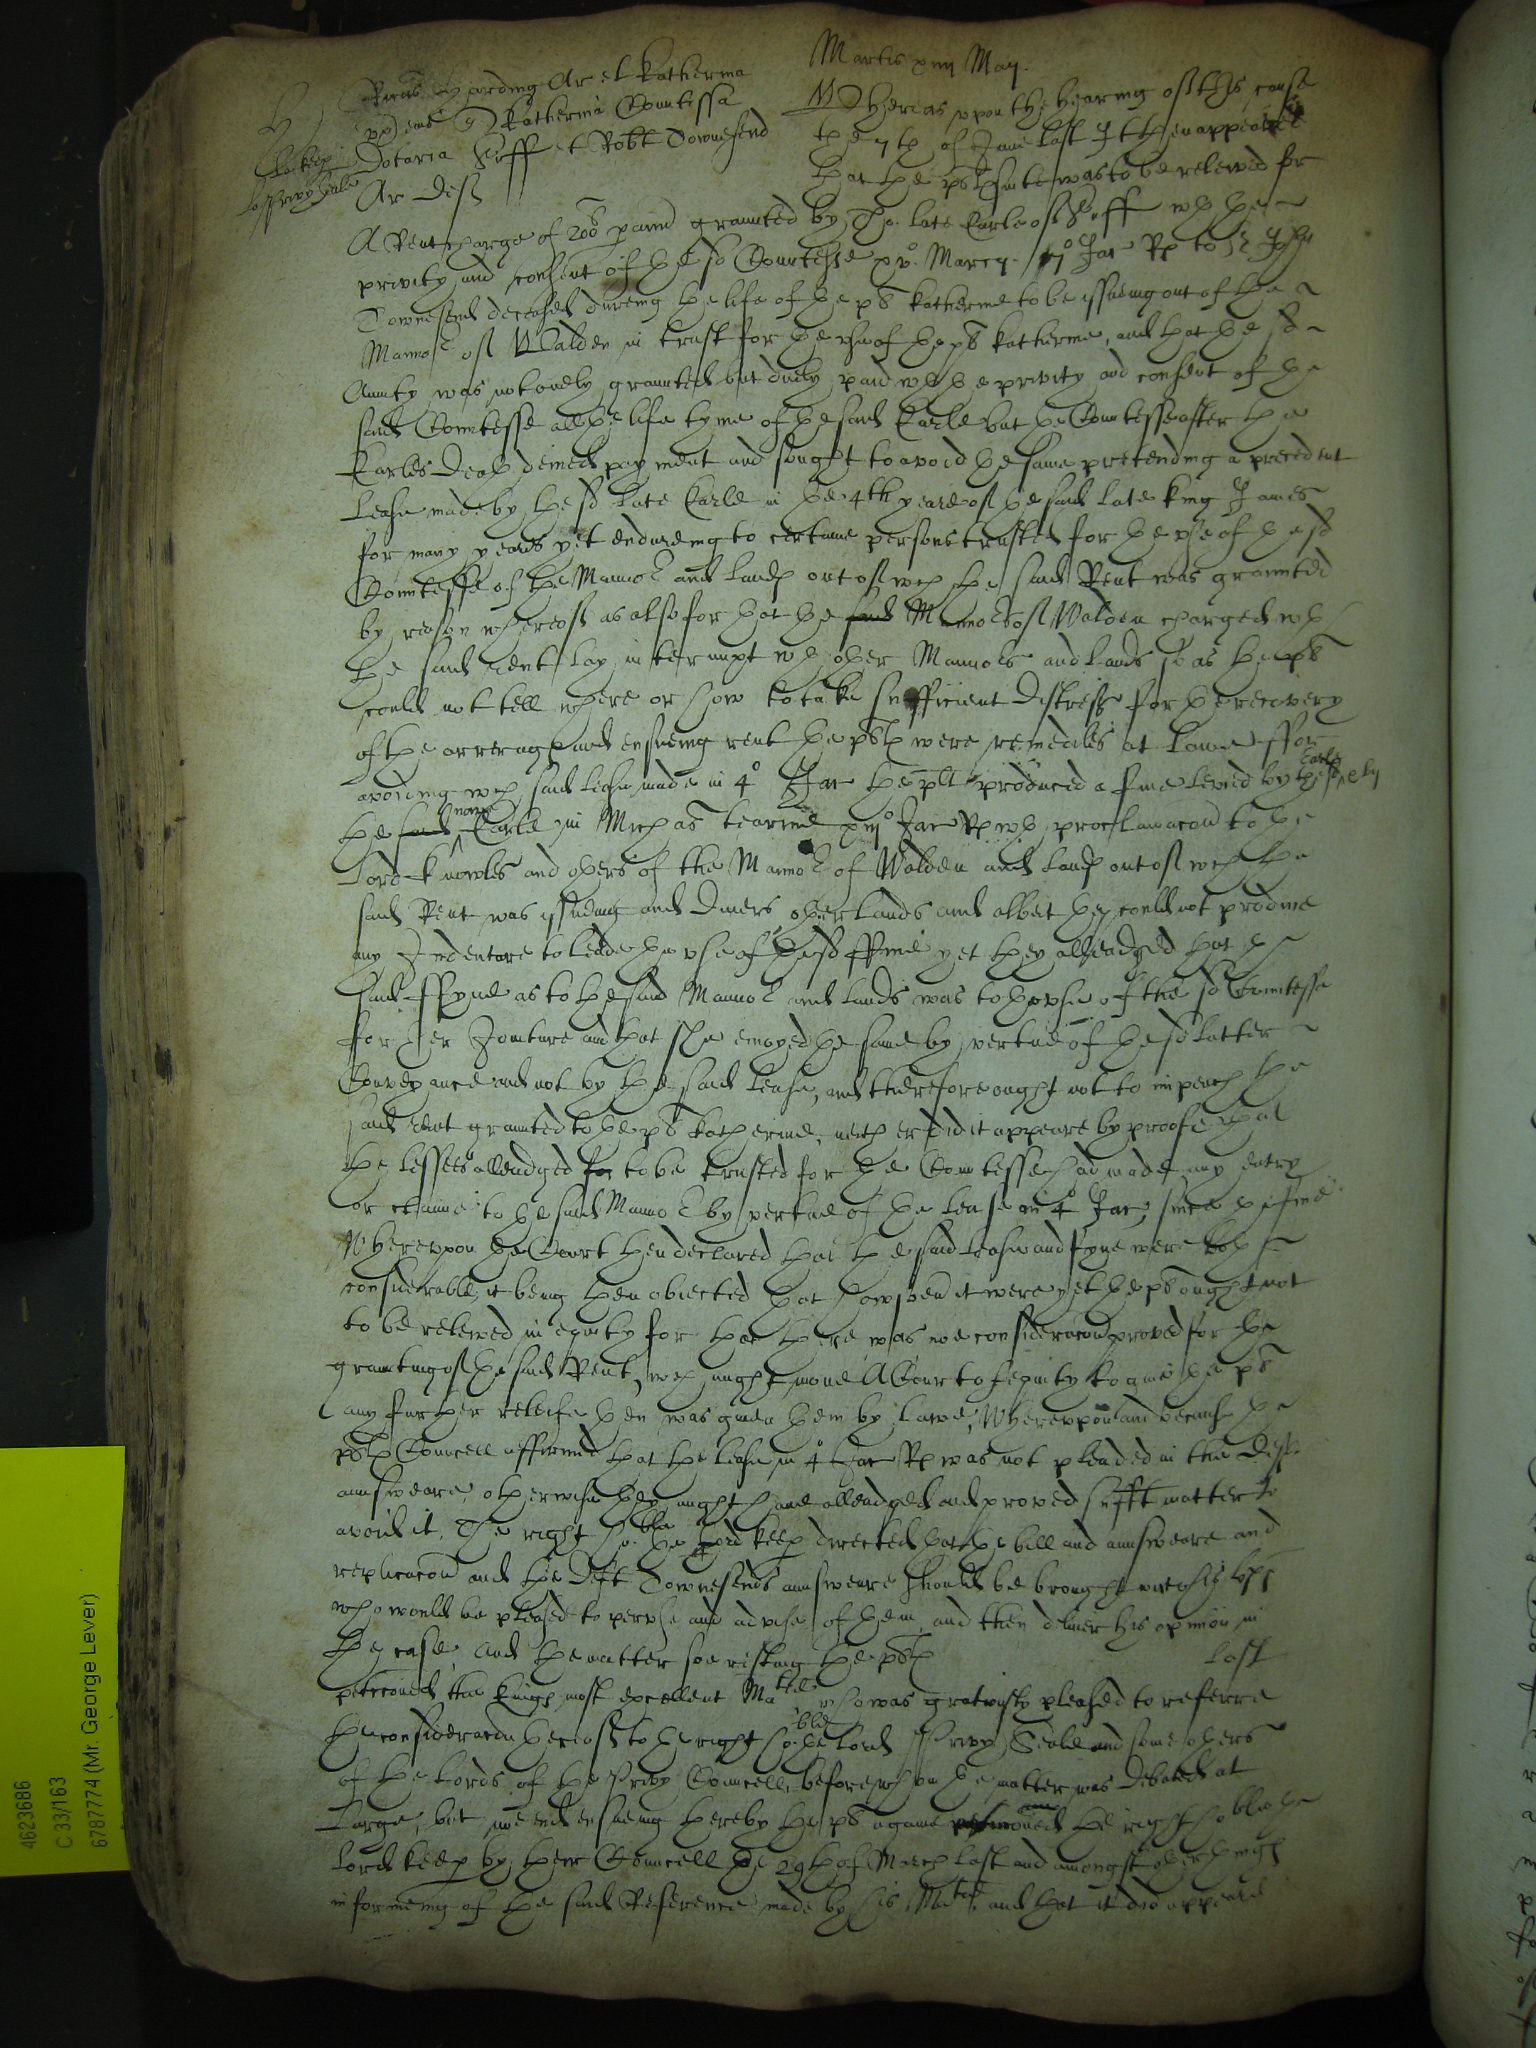 Martis xiiij Maij.
Ricūs Harding Ar et Katherina
vx eius Katherina Comitissa
Dotaria Suff et Robt Townesend
Ar Def
Lo: keep
Lo: privy Seale
Whereas vpon the hearing of this cause
the 7th of June last It then appeared
that the ps suite was to be releived for
A Rent charge of 200 p ann graunted by Tho. late Earle of Suff wth the
privity and consent of the sd Countesse xv° Marcij Jac Rs to
Townesend deceased dureing the life of the ps Katherine to be issueing out of the
Mannor of Walden in trust for the vse of the ps Katherine, and that the sd
Annity was not onely graunted but duely paid wth the privity and consent of the
said Comtesse all the life tyme of the said Earle but the Comtesse after the
Earles Death denied payment and sought to avoid the same pretending a precedent
Lease made by the sd late Earle in the 4th yeare of the said late King James
for many yeares yet endureing to certaine persons trusted for the vse of the sd
Comtesse of the Mannor and lands out of wch the said Rent was graunted
by reason whereof as also for that the said Mannor of Walden charged wth
the said rent lay intermixt wth other Mannors and Lands so as the ps
could not tell where or how to take sufficient Distresse for the recovery
of the arrerages and ensueing rent the ps were remediles at Lawe ffor
avoiding wch said lease made in 4° Jac the plt produced a fine levied by the sd Earle & by
the said nowe Earle in Michas tearme xiij° Jac Rs wth proclamacon to the
Lord Knowles and others of the Mannor of Walden and lands out of wch the
said Rent was issueing and Divers other lands and albeit they could not produce
any Indenture to leade the vse of the sd ffine yet they alleadged that the
said ffyne as to the said Mannor and lands was to the vse of the sd Comtesse
for her Jointure and that she enioyed the same by vertue of the sd latter
Conveyance and not by the said lease, and therefore ought not to impeach the
said rent graunted to the ps Katherine, neither did it appeare by proofe that
the lessees alleadged for to be trusted for the Comtesse had made any entry
or claime to the said Mannor by vertue of the lease in 4° Jac, since the fine
Wherevpon the Court then declared that the said lease and fyne were both
considerable, it being then obiected that howsoever it were yet the ps ought not
to be releived in equity for that there was noe consideracon proved for the
graunting of the said Rent, wch might move A Court of equity to give the ps
any further releife then was given them by lawe, Wherevpon and because the
ps Councell affirmed that the lease in 4° Jac Rs was not pleaded in the Def
answeare, otherwise they might have alleadged and proved sufft matter to
avoid it, The right ho:ble the Lord keep directed that the bill and answeare and
replicacon and the Deft Townesends answeare should be brought vnto his lpp
who would be pleased to pervse and advise of them, and then deliver his opinion in
the case, and the matter soe resting the ps last
peticoned the Kings most excellent Matie who was gratiously pleased to referre
the consideracon thereof to the right ho:ble the Lord Privy Seale and some others
of the Lords of the Privy Councell, before whom the matter was debated at
Large, but noe end ensueing thereby the ps againe moved the right hoble the
Lord keep by their Councell the 29th of March last and amongst other things
informeing of the said Reference made by his Matie and that it did appeare
4623686
C 33/163
6787774 (Mr. George Lever)